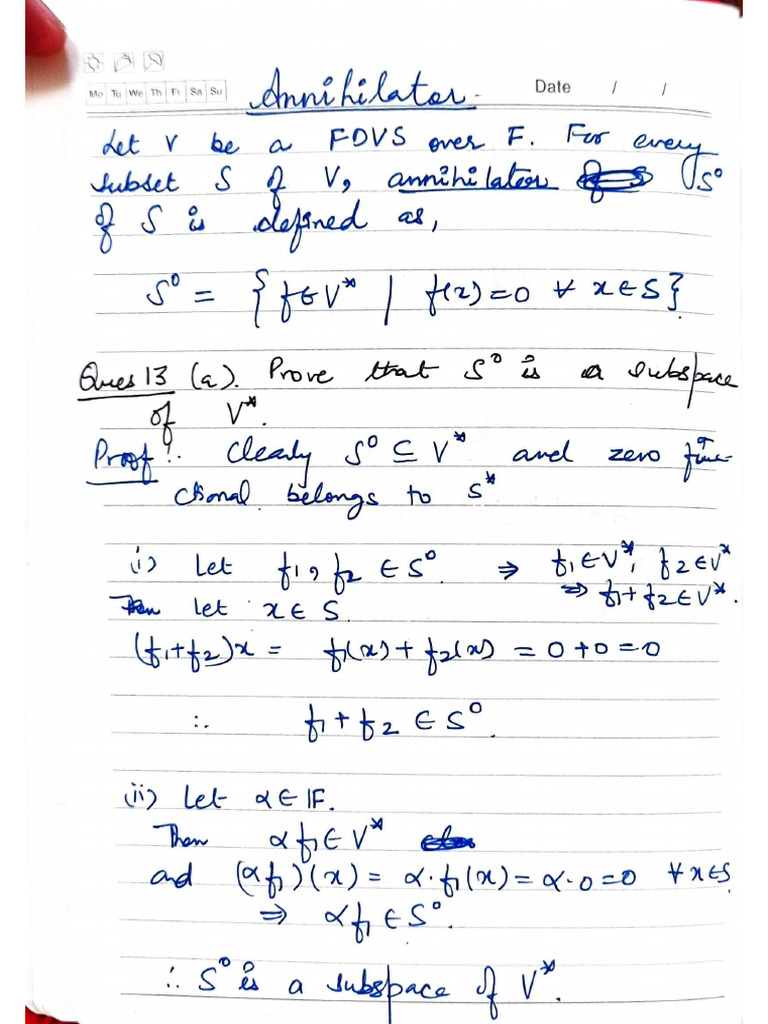 Mo Tu We Th Fi Sa Su
Annihilator
Date / /
Let V be a FDVS over F. For every
subset S of V, annihilator S⁰
of S is defined as,
S⁰ = { f ∈ V* | f(x) = 0 ∀ x ∈ S }
Ques 13 (a). Prove that S⁰ is a subspace
of V*.
Proof:. Clearly S⁰ ⊆ V* and zero func-
ctional belongs to S*
(i) Let f₁, f₂ ∈ S⁰ ⇒ f₁ ∈ V*, f₂ ∈ V*
⇒ f₁ + f₂ ∈ V*.
let x ∈ S.
(f₁+f₂)x = f₁(x) + f₂(x) = 0 + 0 = 0
∴ f₁ + f₂ ∈ S⁰.
(ii) Let α ∈ IF.
Then αf₁ ∈ V*
and (αf₁)(x) = α·f₁(x) = α·0 = 0 ∀ x ∈ S
⇒ αf₁ ∈ S⁰.
∴ S⁰ is a subspace of V*.